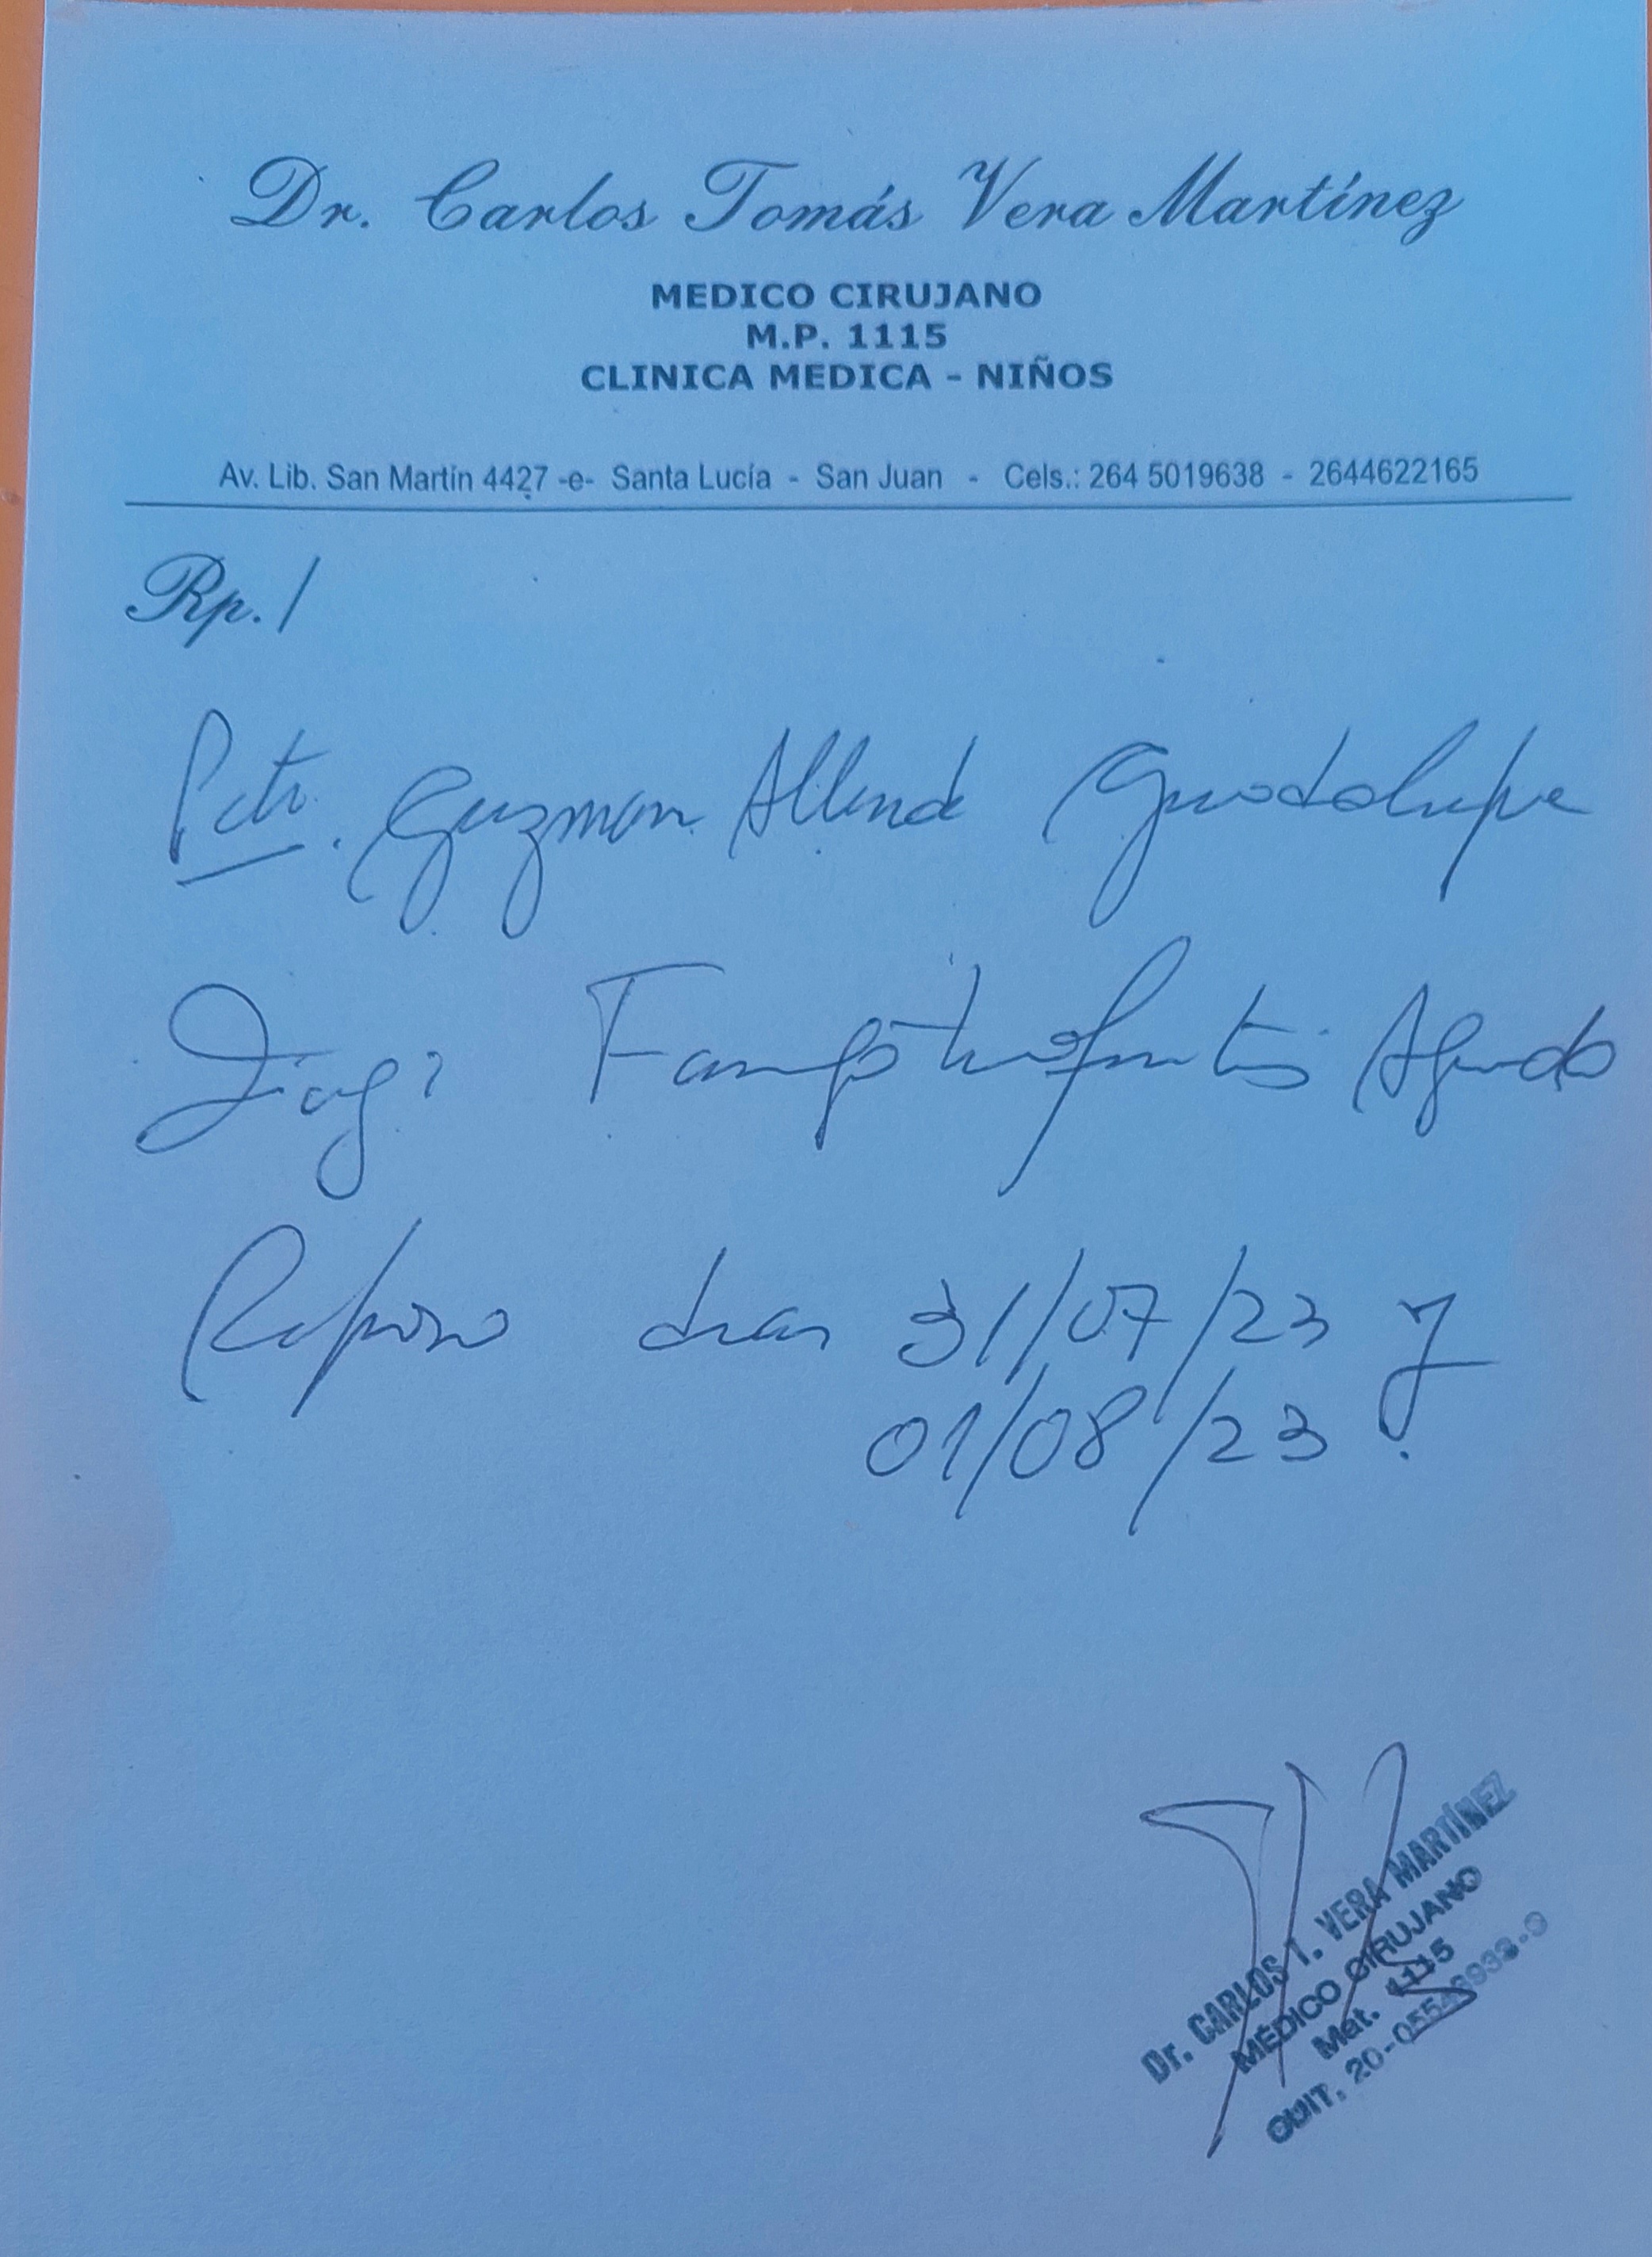 Dr. Carlos Tomás Vera Martínez
MEDICO CIRUJANO
M.P. 1115
CLINICA MEDICA - NIÑOS
Av. Lib. San Martín 4427 -e- Santa Lucía - San Juan - Cels.: 264 5019638 - 2644622165
Rp./
Pcte. Guzman Allend Guadalupe
Diag: Agudo
Reposo dias 31/07/23 y
01/08/23.
Dr. CARLOS T. VERA MARTÍNEZ
MÉDICO CIRUJANO
Mat. 1115
CUIT.